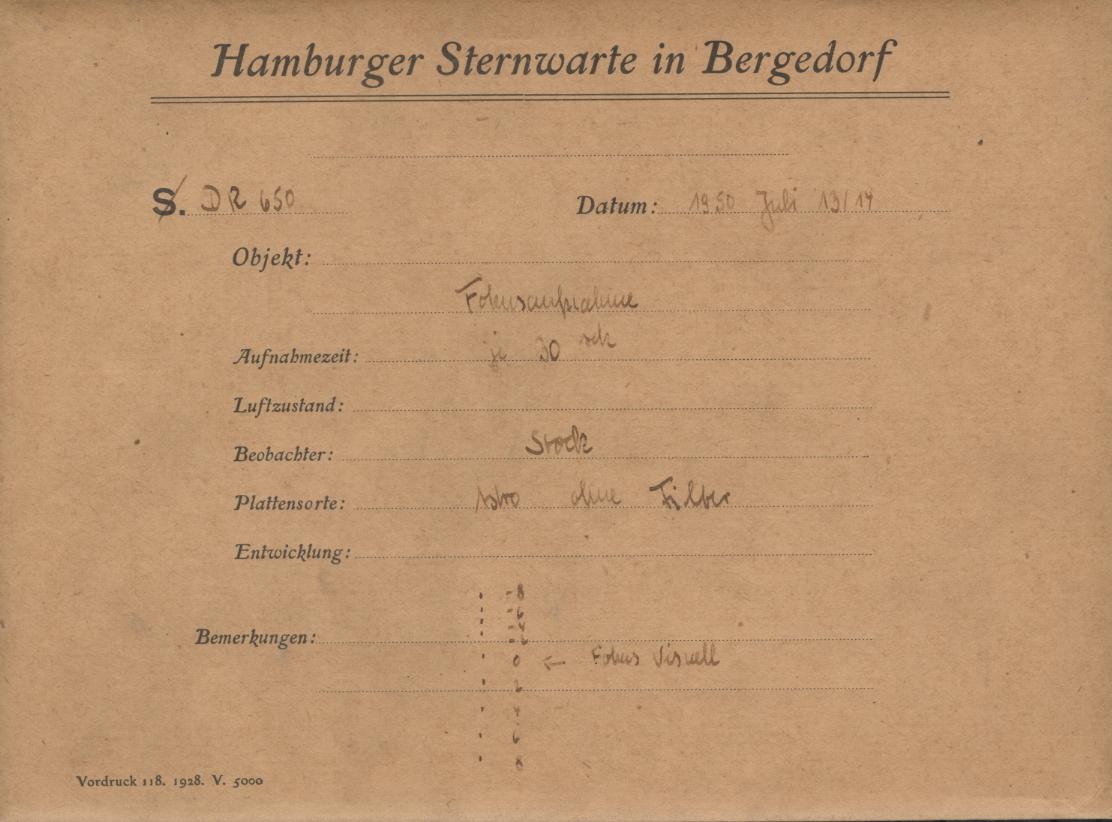 Hamburger Sternwarte in Bergedorf
S. DR 650 Datum: 1950 Juli 13/14
Objekt:
Fokusaufnahme
Aufnahmezeit: je 30 sek
Luftzustand:
Beobachter: Stock
Plattensorte: Astro ohne Filter
Entwicklung:
-8
-6
-4
Bemerkungen: -2
0 ← Fokus visuell
2
4
6
8
Vordruck 118. 1928. V. 5000